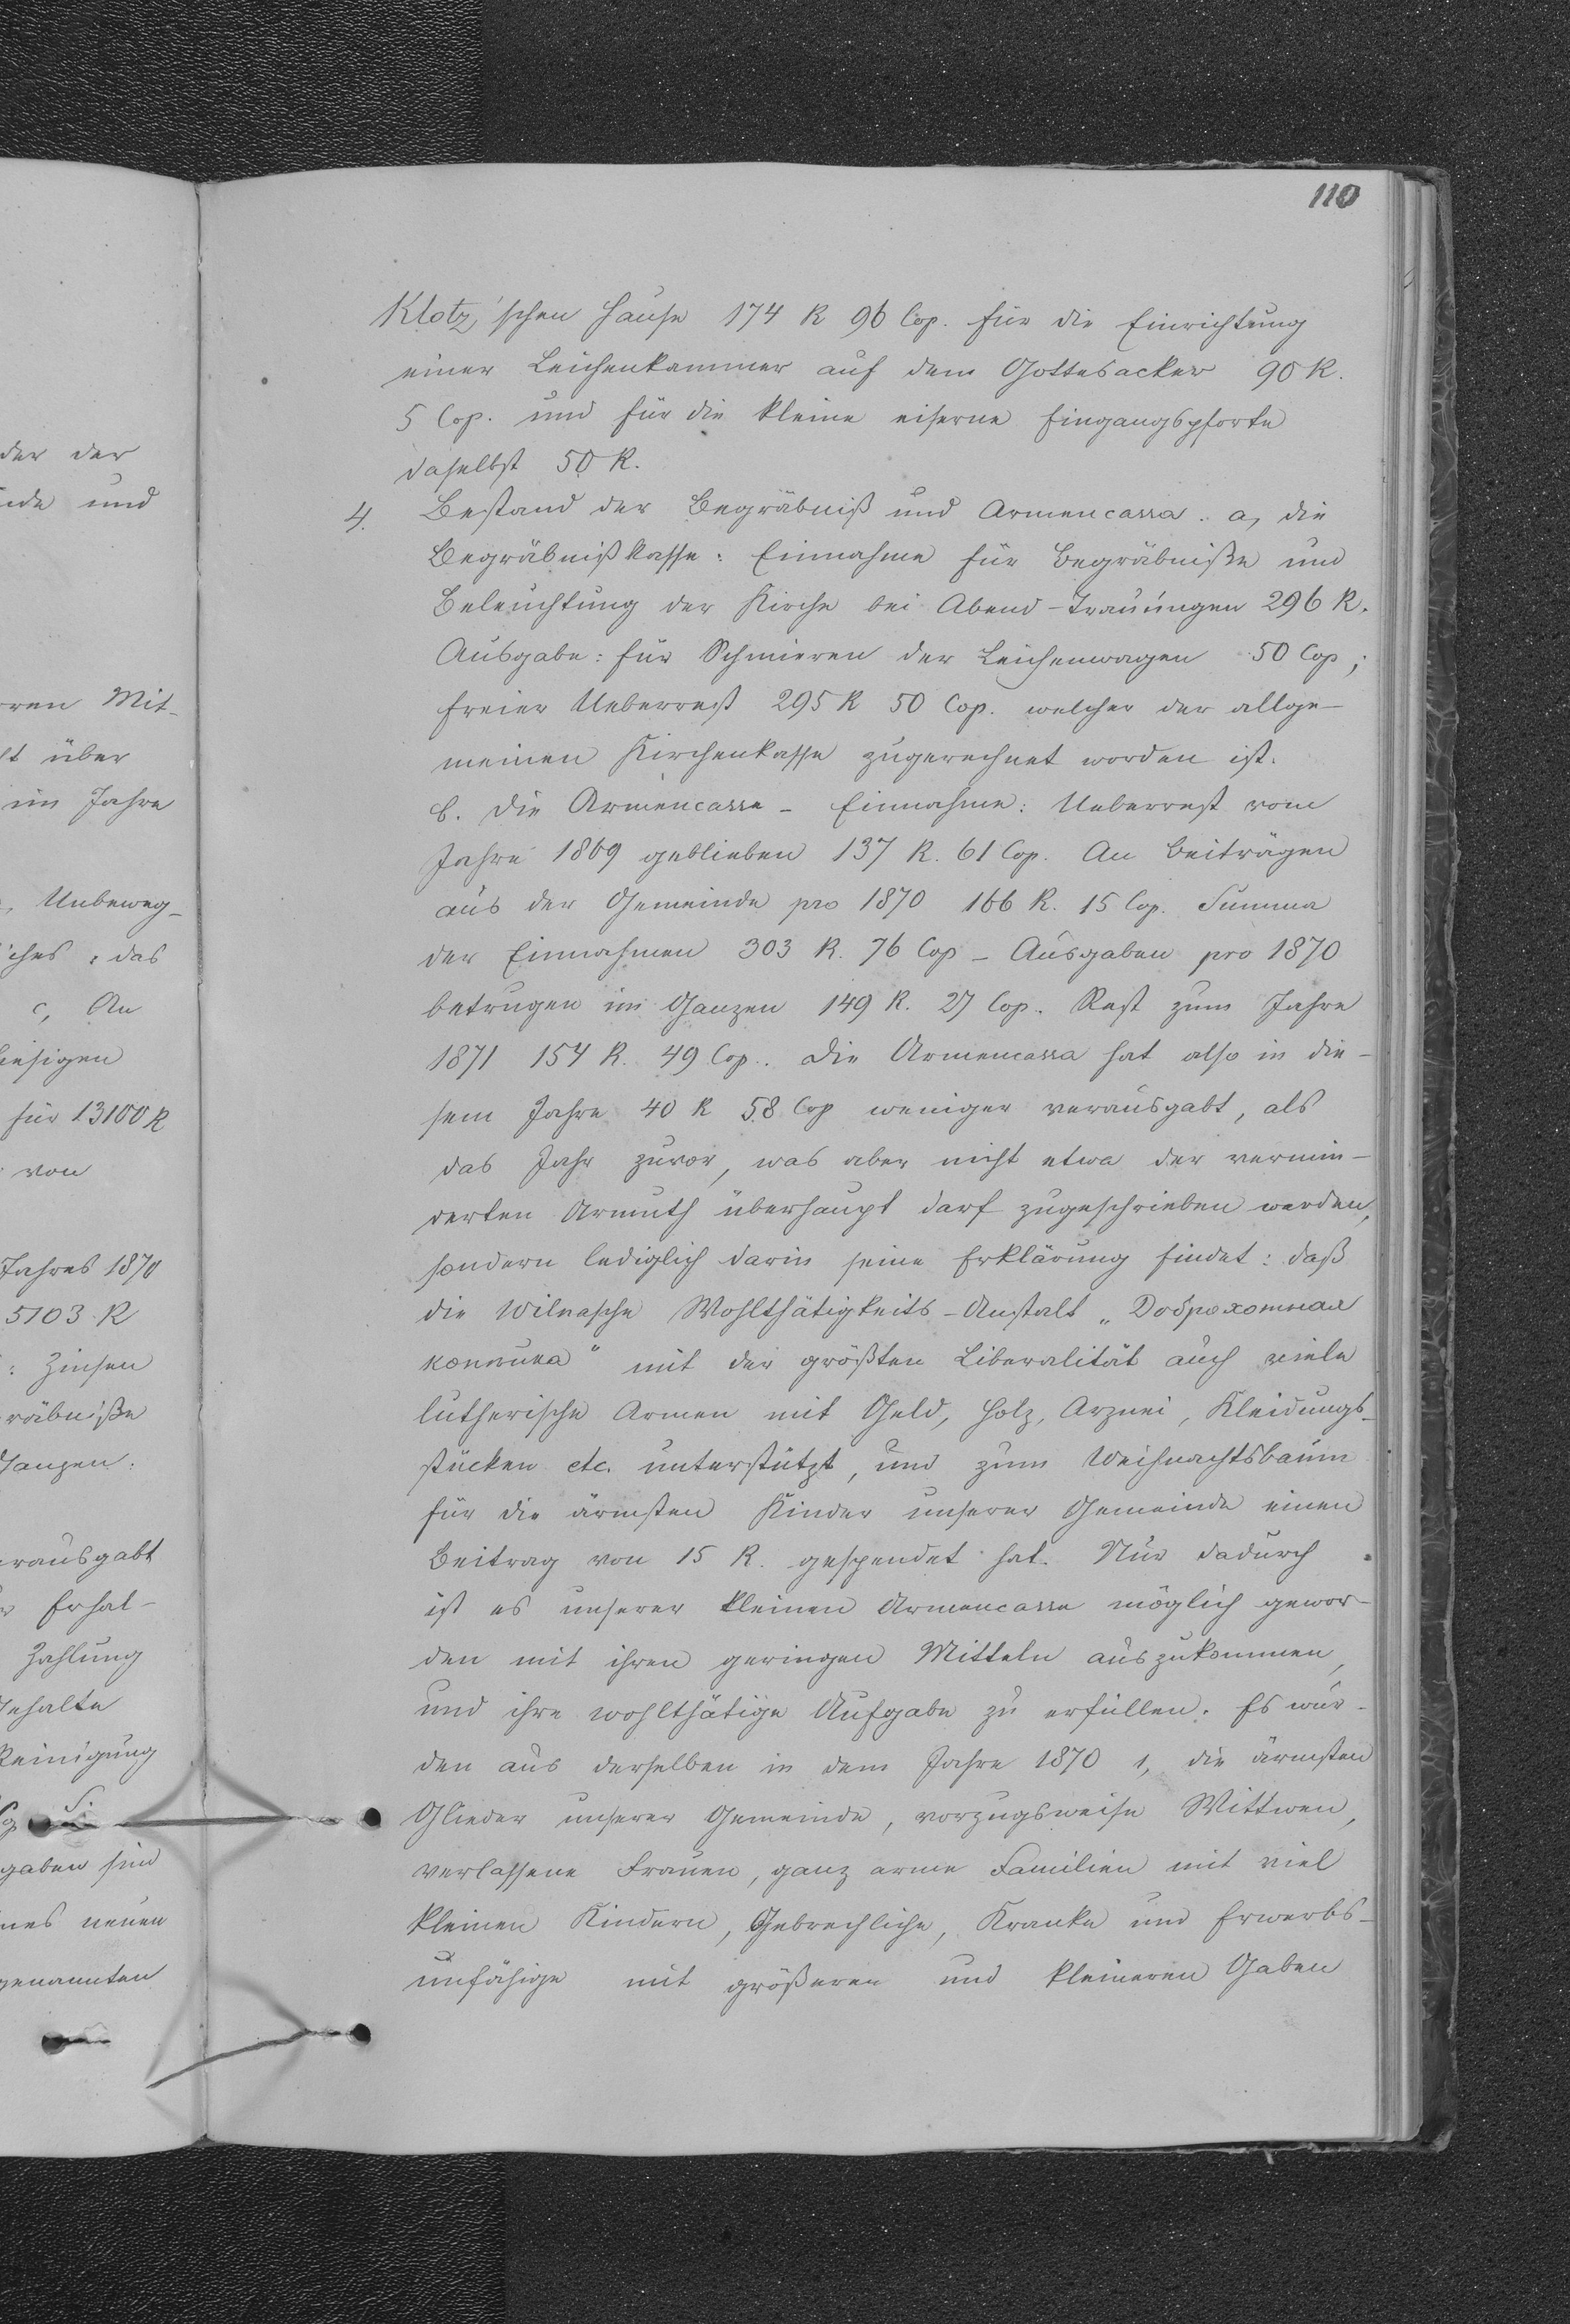 110
der der
nde und
ren Mit-
lt über
im Jahre
Unbeweg-
iches, das
c, An
hiesigen
für 13100 R
von
Jahres 1870
5103 R
: Zinsen
räbniße
Ganzen:
erausgabt
Erhal-
Zahlung
Gehalte
Reinigung
gaben sind
nes neuen
genannten
Klotz'schen Hause 174 R 96 Cop. für die Einrichtung
einer Leichenkammer auf dem Gottesacker 90 R.
5 Cop. und für die kleine eiserne Eingangspforte
daselbst 50 R.
4. Bestand der Begräbniß und Armencassa. a, die
Begräbnißkasse: Einnahme für Begräbniße und
Beleuchtung der Kirche bei Abend-Trauungen 296 R.
Ausgabe: für Schmieren der Leichenwagen 50 Cop;
freier Ueberrest 295 R 50 Cop. welcher der allge-
meinen Kirchenkasse zugerechnet worden ist.
b. Die Armencasse - Einnahme: Ueberrest vom
Jahre 1869 geblieben 137 R. 61 Cop. An Beiträgen
aus der Gemeinde pro 1870 166 R. 15 Cop. Summa
der Einnahmen 303 R. 76 Cop - Ausgaben pro 1870
betrugen im Ganzen 149 R. 27 Cop. Rest zum Jahre
1871 154 R. 49 Cop.. Die Armencassa hat also in die-
sem Jahre 40 R 58 Cop weniger verausgabt, als
das Jahr zuvor, was aber nicht etwa der vermin-
derten Armuth überhaupt darf zugeschrieben werden,
sondern lediglich darin seine Erklärung findet: daß
die Wilnasche Wohlthätigkeits-Anstalt „Доброхотная
копѣйка" mit der größten Liberalität auch viele
lutherische Armen mit Geld, Holz, Arznei, Kleidungs-
stücken etc. unterstützt, und zum Weihnachtsbaum
für die ärmsten Kinder unserer Gemeinde einen
Beitrag von 15 R. gespendet hat. Nur dadurch
ist es unserer kleinen Armencasse möglich gewor-
den mit ihren geringen Mitteln auszukommen,
und ihre wohlthätige Aufgabe zu erfüllen. Es wur-
den aus derselben in dem Jahre 1870 1, die ärmsten
Glieder unserer Gemeinde, vorzugsweise Wittwen,
verlassene Frauen, ganz arme Familien mit viel
kleinen Kindern, Gebrechliche, Kranke und Erwerbs-
unfähige mit größeren und kleineren Gaben